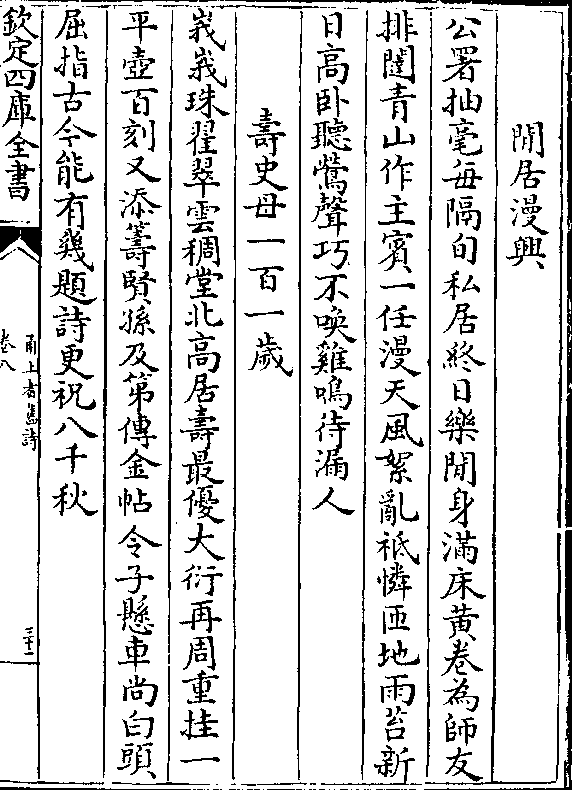 閒居漫興
公署抽毫每隔旬私居終日樂閒身滿床黄卷為師友
排闥青山作主賓一任漫天風絮亂祗憐匝地雨苔新
日高卧聽鶯聲巧不喚雞鳴待漏人
壽史母一百一歲
峩峩珠翟翠雲稠堂北高居壽最優大衍再周重挂一
平壺百刻又添籌賢孫及第傳金帖令子懸車尚白頭
屈指古今能有幾題詩更祝八千秋
欽定四庫全書
甬上耆舊詩
卷八
三十二